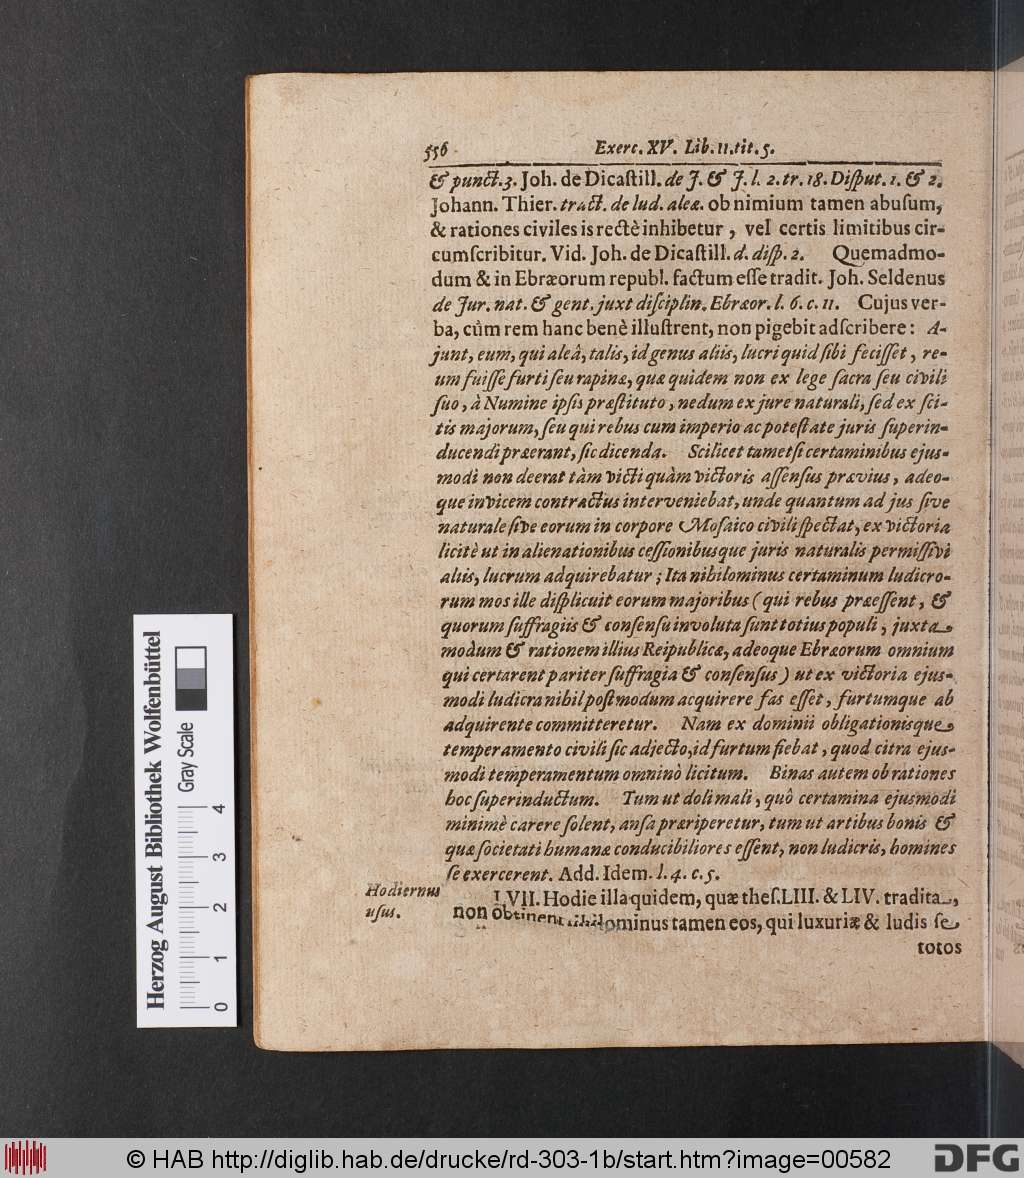 556 Exerc. XV. Lib. II. tit. 5.
& punct. 3. Joh. de Dicaſtill. de J. & J. l. 2. tr. 18. Diſput. 1. & 2.
Johann. Thier. tract. de lud. aleæ. ob nimium tamen abuſum,
& rationes civiles is rectè inhibetur, vel certis limitibus cir-
cumſcribitur. Vid. Joh. de Dicaſtill. d. diſp. 2. Quemadmo-
dum & in Ebræorum republ. factum eſſe tradit. Joh. Seldenus
de Jur. nat. & gent. juxt diſciplin. Ebræor. l. 6. c. 11. Cujus ver-
ba, cùm rem hanc benè illuſtrent, non pigebit adſcribere: A-
junt, eum, qui aleâ, talis, id genus aliis, lucri quid ſibi feciſſet, re-
um fuiſſe furti ſeu rapinæ, quæ quidem non ex lege ſacra ſeu civili
ſuo, à Numine ipſis præſtituto, nedum ex jure naturali, ſed ex ſci-
tis majorum, ſeu qui rebus cum imperio ac poteſtate juris ſuperin-
ducendi præerant, ſic dicenda. Scilicet tametſi certaminibus ejus-
modi non deerat tàm victi quàm victoris aſſenſus prævius, adeo-
que invicem contractus interveniebat, unde quantum ad jus ſive
naturale ſive eorum in corpore Moſaico civili ſpectat, ex victoria
licitè ut in alienationibus ceſſionibusque juris naturalis permiſſivi
aliis, lucrum adquirebatur; Ita nihilominus certaminum ludicro-
rum mos ille diſplicuit eorum majoribus (qui rebus præeſſent, &
quorum ſuffragiis & conſenſu involuta ſunt totius populi, juxta
modum & rationem illius Reipublicæ, adeoque Ebræorum omnium
qui certarent pariter ſuffragia & conſenſus) ut ex victoria ejus-
modi ludicra nihil poſtmodum acquirere fas eſſet, furtumque ab
adquirente committeretur. Nam ex dominii obligationisque
temperamento civili ſic adjecto, id furtum fiebat, quod citra ejus-
modi temperamentum omninò licitum. Binas autem ob rationes
hoc ſuperinductum. Tum ut doli mali, quô certamina ejusmodi
minimè carere ſolent, anſa præriperetur, tum ut artibus bonis &
quæ ſocietati humanæ conducibiliores eſſent, non ludicris, homines
ſe exercerent. Add. Idem. l. 4. c. 5.
Hodiernus
uſus.
LVII. Hodie illa quidem, quæ theſ. LIII. & LIV. tradita,
non obtinent nihilominus tamen eos, qui luxuriæ & ludis ſe
totos
Herzog August Bibliothek Wolfenbüttel
Gray Scale
0 1 2 3 4
© HAB http://diglib.hab.de/drucke/rd-303-1b/start.htm?image=00582
DFG